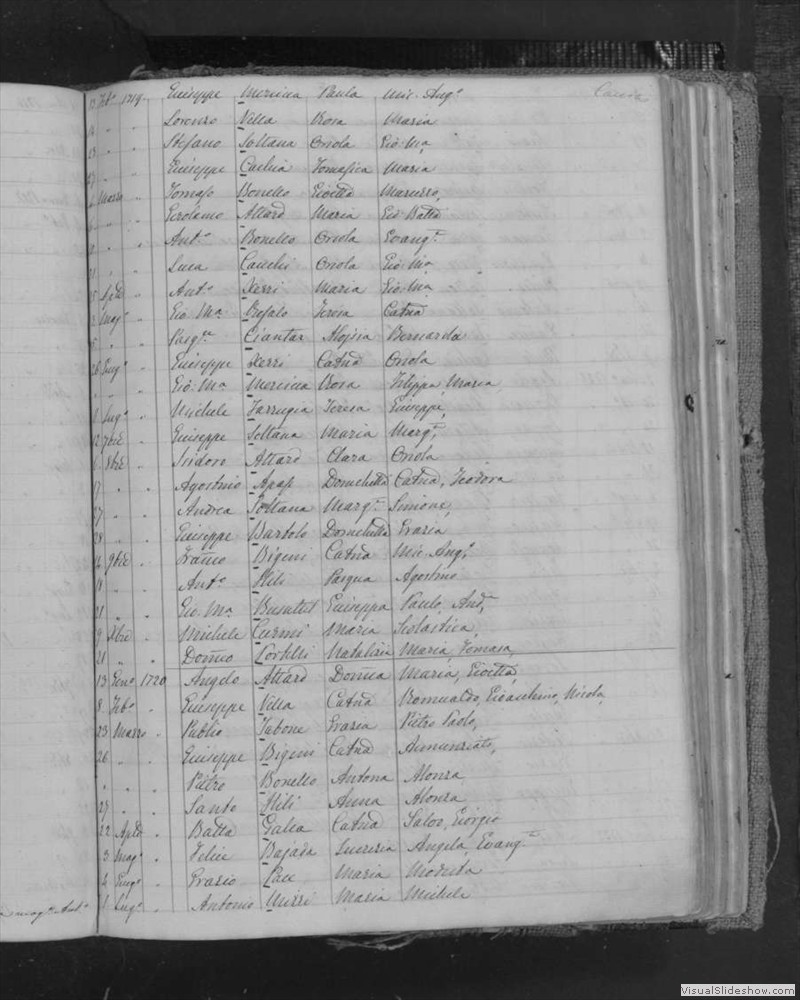 13 Feb° 1719 Giuseppe Mercieca Paula Mic. Ang° Cauva
" " Lorenzo Villa Rosa Maria
" " Stefano Soltana Orsola Gio Ma
" " Giuseppe Cachia Tomasica Maria
Marzo " Tomaso Bonello Gioetta
" " Gerolamo Attard Maria Gio Batta
" " Ant° Bonello Orsola Evang^ta
" " Luca Cauchi Orsola Gio Ma
15 Aple " Ant° Xerri Maria Gio Ma
Mag° " Gio. Ma Teresa Catna
" " Ciantar Aloysia Bernarda
26 Giug° " Giuseppe Xerri Catna Orsola
" " Gio. Ma Mercieca Rosa Filippa, Maria
Lug° " Michele Farrugia Teresa Giuseppe,
12 7bre " Giuseppe Soltana Maria Marg^ta,
8bre " Isidoro Attard Clara Orsola
17 " " Agostino Apap Domchella Catna, Teodora
27 " " Andrea Soltana Marg^ta Simone,
28 " " Giuseppe Bartolo Domchella Grazia
9bre " Franco Bigeni Catna Mic. Ang°
18 " " Ant° Hili Pasqua Agostino
21 " " Gio. Ma Busuttil Giuseppa Paulo, Ant°,
9 Xbre " Michele Curmi Maria Scolastica,
21 " " Domco Natalizia Maria, Tomasa
13 Gen° 1720 Angelo Attard Domca Maria, Gioetta,
8 Feb° " Giuseppe Villa Catna Romualdo, Gioachino, Nicola,
23 Marzo " Publio Tabone Grazia Pietro Paolo,
26 " " Giuseppe Bigeni Catna Annunziata,
" " " Pietro Bonello Antona Alonza
27 " " Santo Hili Anna Alonza
22 Aple " Batta Galea Catna Salvo, Giorgio
3 Mag° " Felice Bajada Lucrezia Angela, Evang^ta
2 Giug° " Grazio Pace Maria Modesta
1 Lug° " Antonio Mizzi Maria Michele
mag° Ant°
VisualSlideshow.com